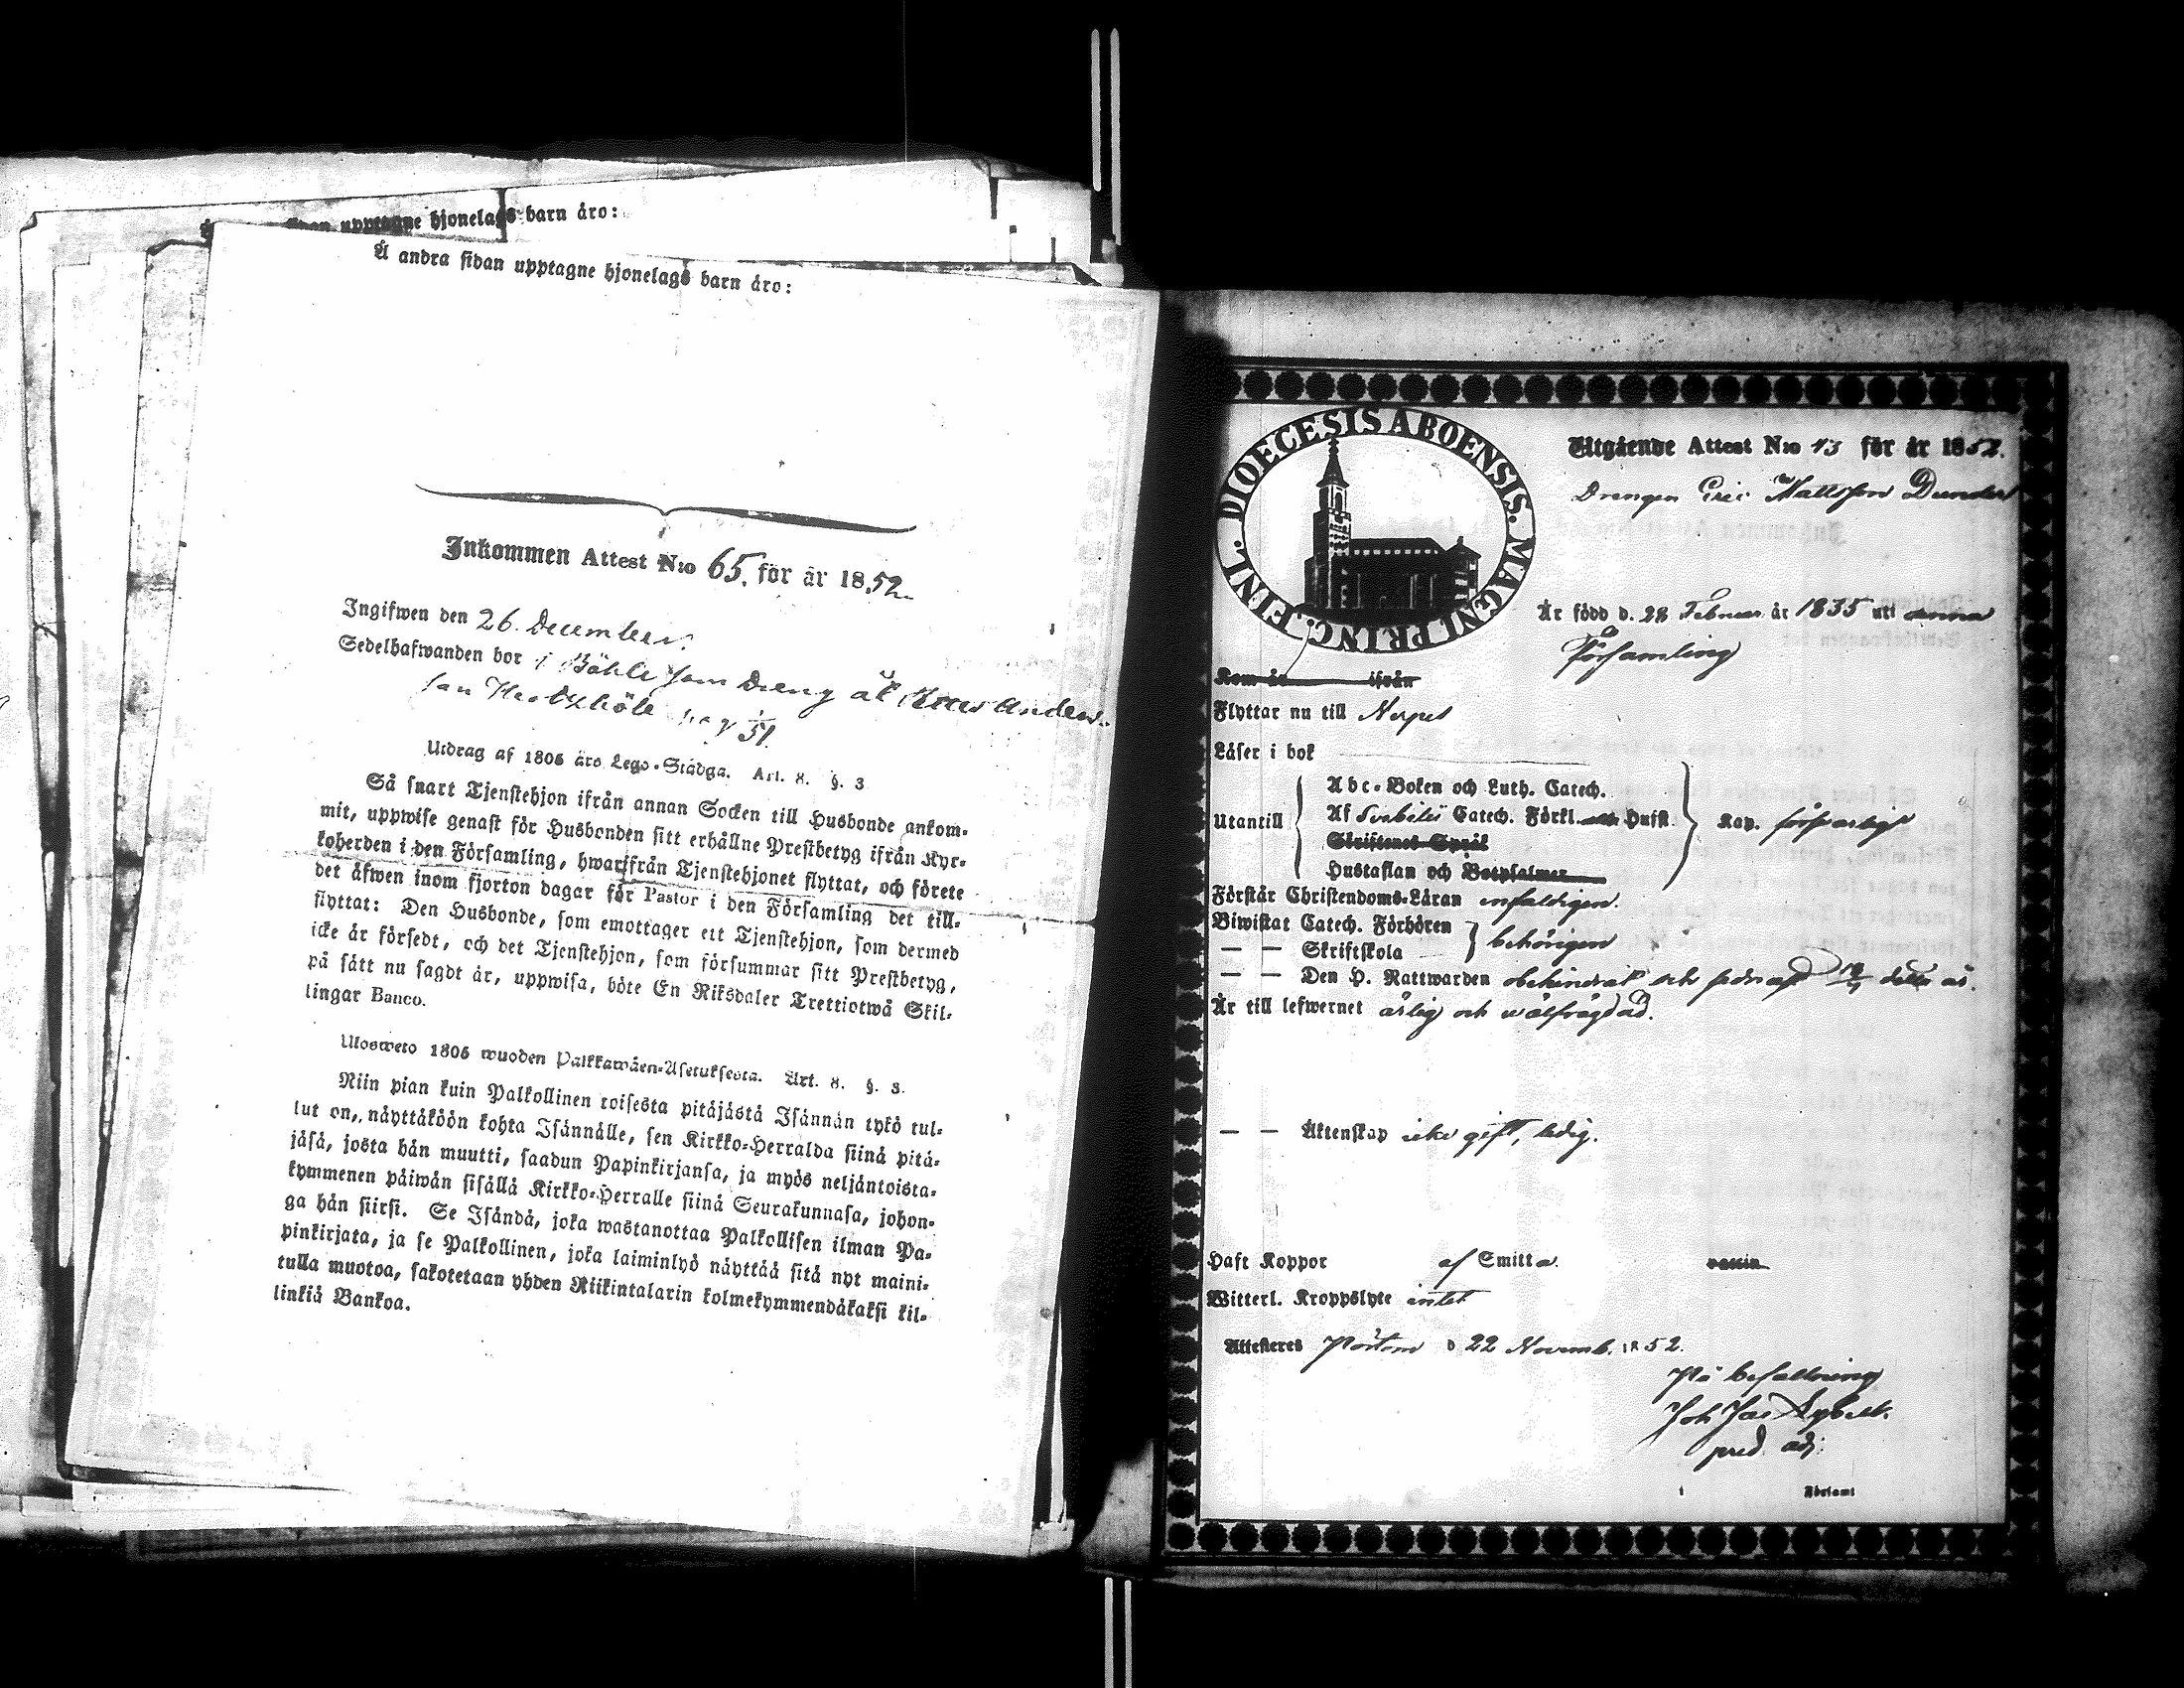 Å andra sidan upptagne hjonelags barn äro:
Å andra sidan upptagne hjonelags barn äro:
Inkommen Attest N:o 65. för år 1852
Ingifwen den 26. December.
Sedelhafwanden bor i Böhle som Dreng åt Anders-
son pag 51
Utdrag af 1805 års Lego-Stadga. Art. 8. §. 3
Så snart Tjenstehjon ifrån annan Socken till Husbonde ankom-
mit, uppwise genast för Husbonden sitt erhållne Prestbetyg ifrån Kyr-
koherden i den Församling, hwarifrån Tjenstehjonet flyttat, och förete
det äfwen inom fjorton dagar för Pastor i den Församling det till-
flyttat: Den Husbonde, som emottager ett Tjenstehjon, som dermed
icke är försedt, och det Tjenstehjon, som försummar sitt Prestbetyg,
på sätt nu sagdt är, uppwisa, böte En Riksdaler Trettiotwå Skil-
lingar Banco.
Ulosweto 1805 wuoden Palkkawäen-Asetuksesta. Art. 8. §. 3.
Niin pian kuin Palkollinen toisesta pitäjästä Isännän tykö tul-
lut on, näyttäköön kohta Isännälle, sen Kirkko-Herralda siinä pitä-
jäsä, josta hän muutti, saadun Papinkirjansa, ja myös neljäntoista-
kymmenen päiwän sisällä Kirkko-Herralle siinä Seurakunnasa, johon-
ga hän siirsi. Se Isändä, joka wastanottaa Palkollisen ilman Pa-
pinkirjata, ja se Palkollinen, joka laiminlyö näyttää sitä nyt maini-
tulla muotoa, sakotetaan yhden Riikintalarin kolmekymmendäkaksi kil-
linkiä Bankoa.
DIOECESIS ABOENSIS. MAGNI PRINC. FINL.
Utgående Attest N:o 43 för år 1852.
Drengen Eric Mattsson Dunder
Är född d. 28 Februar. år 1835 uti denna
Församling
Kom år ifrån
Flyttar nu till Nerpes
Läser i bok
Utantill
Abc-Boken och Luth. Catech.
Af Svebelii Catech. Förkl. och Husft.
Skriftenes Språk
Hustaflan och Botpsalmer
Kap. försvarligt
Förstår Christendoms-Läran enfaldigen.
Biwistat Catech. Förhören
— — Skriftskola
behörigen
— — Den H. Nattwarden obehindrat och sednast detta år.
Är till lefwernet ärlig och wälfrägdad.
— — Äktenskap icke gift, ledig.
Haft Koppor af Smitta. vaccin
Witterl. Kroppslyte intet
Attesteres Pörtom d 22 Novemb. 1852.
På befallning
Joh Jac
pred. adj.